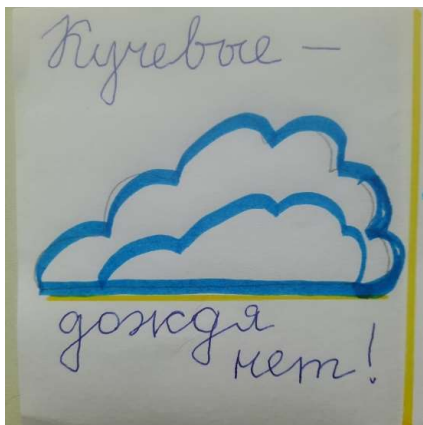 Кучевые —
дождя
нет!